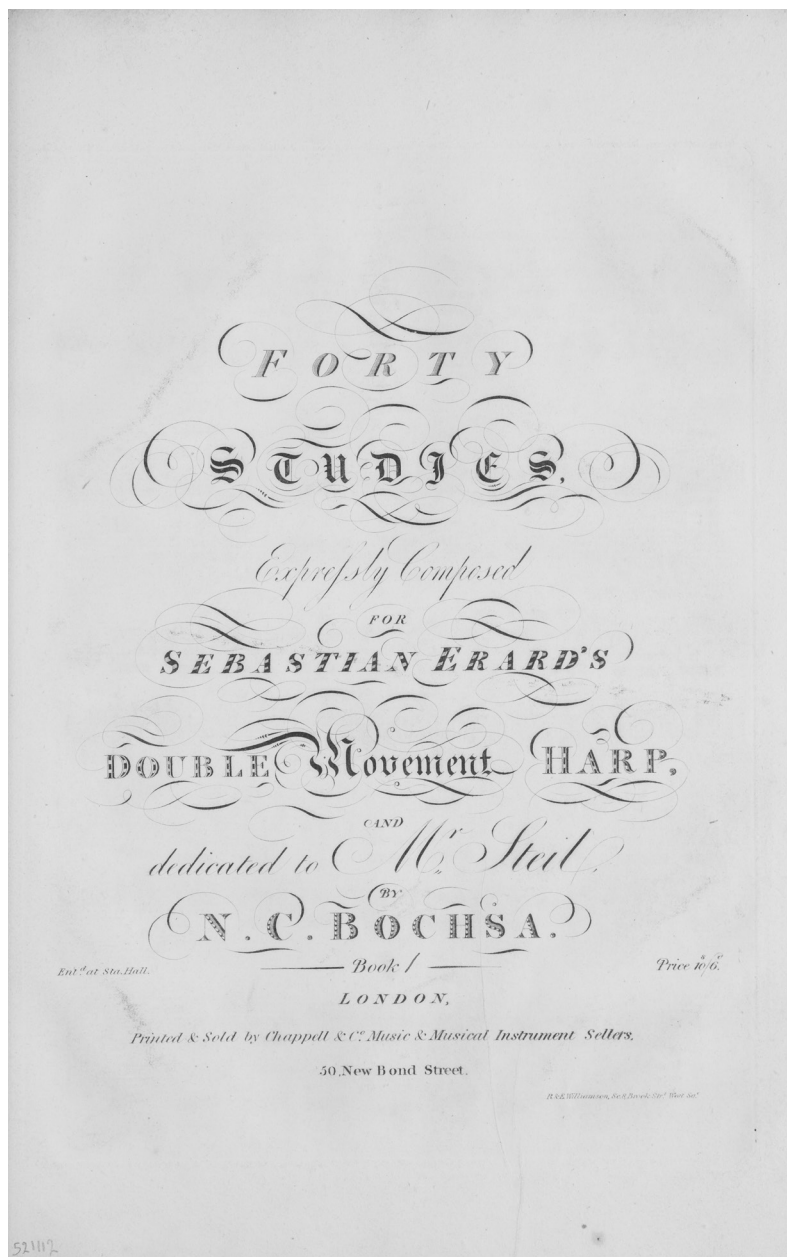 FORTY
STUDIES,
Expreſsly Composed
FOR
SEBASTIAN ERARD'S
DOUBLE Movement HARP,
AND
dedicated to Mr. Steil,
BY
N. C. BOCHSA.
Ent.d at Sta. Hall. Book 1 Price 10s/6d.
LONDON,
Printed & Sold by Chappell & Co. Music & Musical Instrument Sellers,
50, New Bond Street.
Williamson,
521112